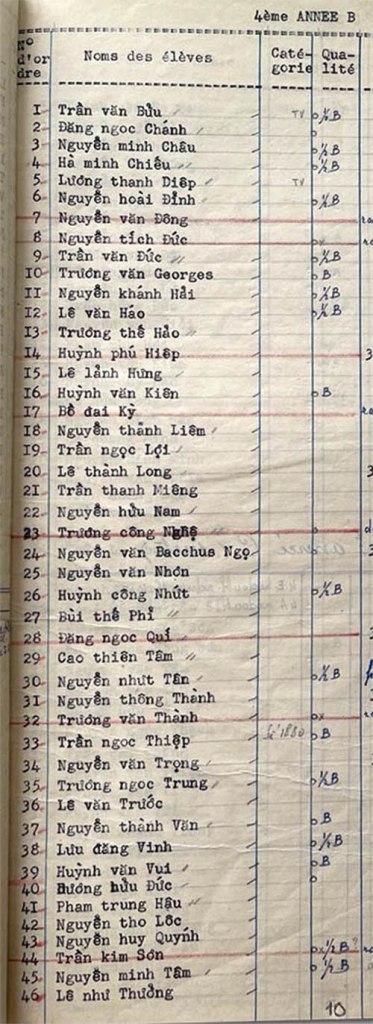 4ème ANNEE B
N° d'or dre Noms des élèves Caté- gorie Qua- lité
I Trần văn Bửu TV ½ B
2 Đăng ngoc Chánh
3 Nguyễn minh Châu ½ B
4 Hà minh Chiếu ½ B
5 Lương thanh Diệp TV
6 Nguyễn hoài Đỉnh ½ B
7 Nguyễn văn Đông
8 Nguyễn tích Đức x
9 Trần văn Đức ½ B
IO Trương văn Georges B
II Nguyễn khánh Hải ½ B
I2 Lê văn Háo ½ B
I3 Trương thế Hảo
I4 Huỳnh phú Hiệp 3
I5 Lê lảnh Hưng
I6 Huỳnh văn Kiên B
I7 Bồ đai Kỳ
I8 Nguyễn thành Liêm
I9 Trần ngọc Lợi
20 Lê thành Long 3
2I Trần thanh Miêng
22 Nguyễn hửu Nam
23 Trương công Nghệ
24 Nguyễn văn Bacchus Ngọ
25 Nguyễn văn Nhơn
26 Huỳnh công Nhứt ½ B
27 Bùi thế Phi
28 Đăng ngoc Quí 3
29 Cao thiên Tâm
30 Nguyễn nhưt Tân ½ B
3I Nguyễn thông Thành
32 Trương văn Thành x
33 Trần ngoc Thiệp Sé 1880 B
34 Nguyễn văn Trọng
35 Trương ngoc Trung ½ B
36 Lê văn Trước
37 Nguyễn thành Văn B
38 Lưu đăng Vinh ½ B
39 Huỳnh văn Vui B
40 Dương hửu Đức
4I Pham trung Hậu
42 Nguyễn tho Lôc
43 Nguyễn huy Quynh
44 Trần kim Sơn x ½ B ?
45 Nguyễn minh Tâm ½ B
46 Lê như Thưởng
10